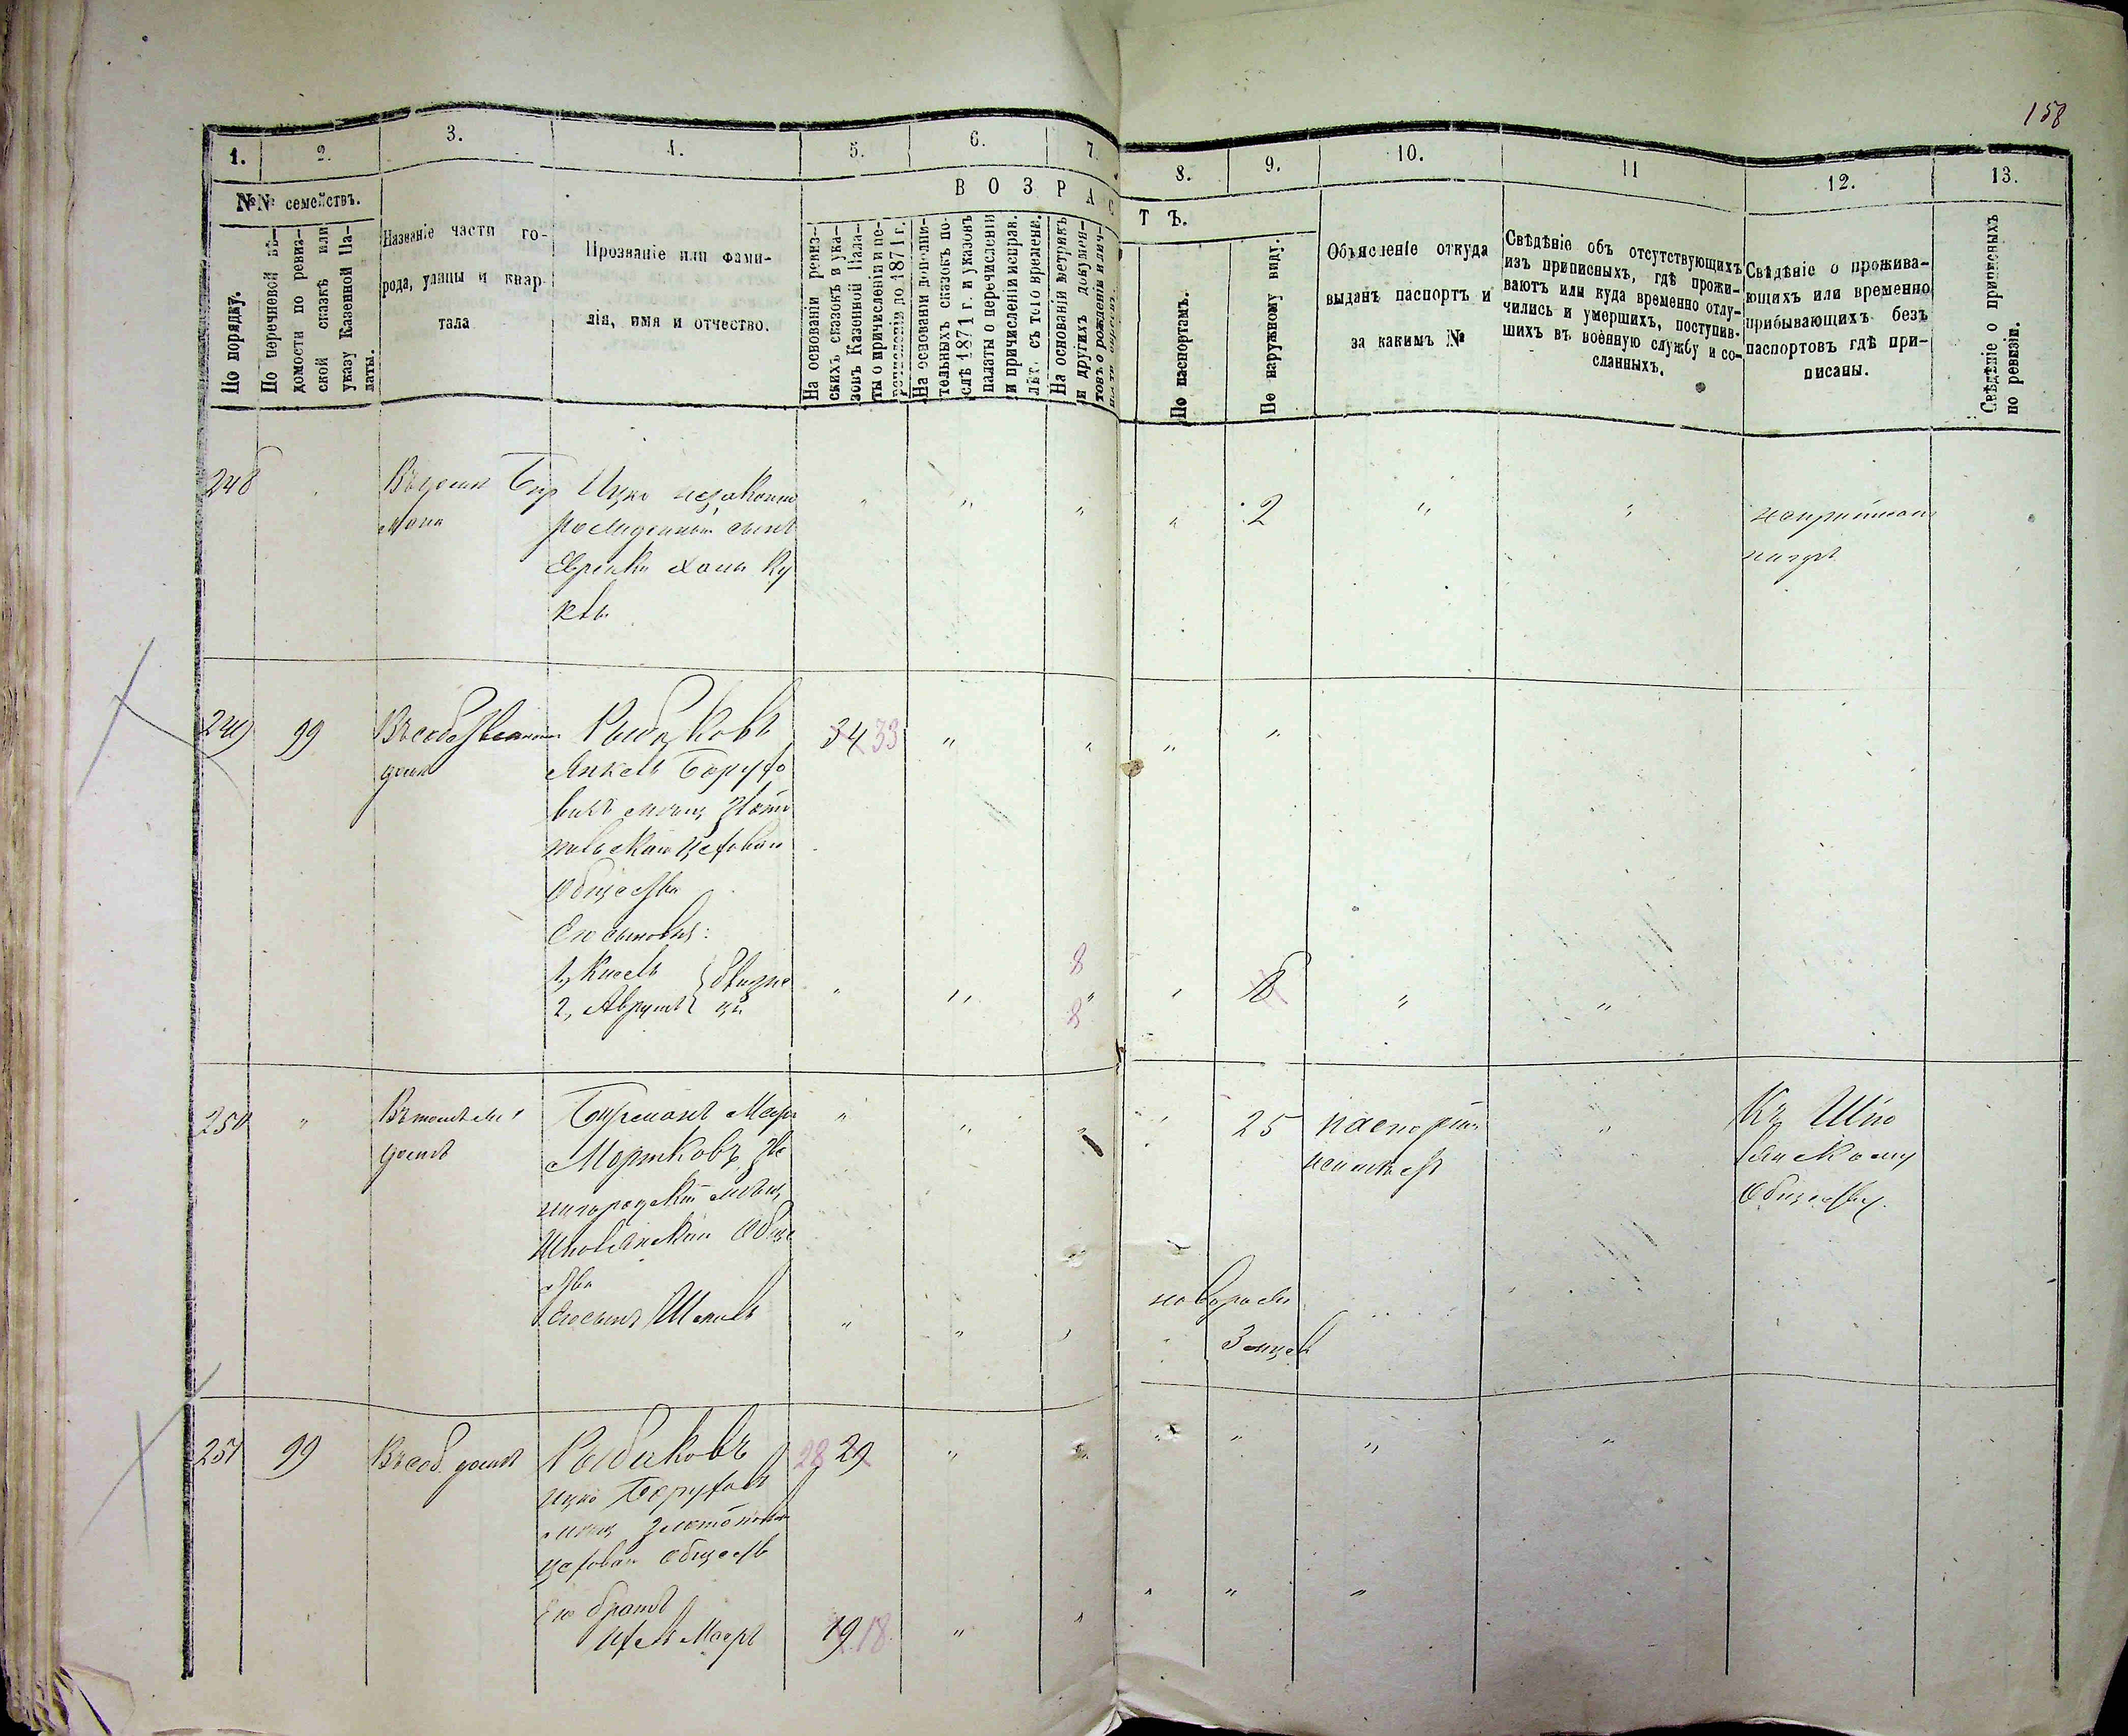 158
1.
2.
3.
4.
5.
6.
7.
8.
9.
10.
11
12.
13.
№№ семействъ.
ВОЗРАС
ТЪ.
По порядку.
По перечневой вѣ-
домости по ревиз-
ской сказкѣ или
указу Казенной Па-
латы.
Названіе части го-
рода, улицы и квар-
тала
Прозваніе или фами-
лія, имя и отчество.
На основаніи ревиз-
скихъ сказокъ и ука-
зовъ Казенной Пала-
ты о причисленіи и пе-
речисленіи до 1871 г.
На основаніи дополни-
тельныхъ сказокъ по-
слѣ 1871 г. и указовъ
палаты о перечисленіи
и причисленіи исправ.
лѣт. съ того времени.
На основаніи метрикъ
и другихъ докумен-
товъ о рожденіи и лич-
По паспортамъ.
По наружному виду.
Объясленіе откуда
выданъ паспортъ и
за какимъ №
Свѣдѣніе объ отсутствующихъ
изъ приписныхъ, гдѣ прожи-
ваютъ или куда временно отлу-
чились и умершихъ, поступив-
шихъ въ военную службу и со-
сланныхъ.
Свѣдѣніе о прожива-
ющихъ или временно
прибывающихъ безъ
паспортовъ гдѣ при-
писаны.
Свѣдѣніе о приписныхъ
по ревизіи.
248
Въ домѣ Бир
мана
Ицко незаконно
рожденный сынъ
Еврейки Ханы Ку
" " " " 2 " "
неприписан
нигдѣ
249 99
Въ собственном
домѣ
Рыбаковъ
Янкель Борухо
вичъ мѣщ Злато
польскаго цехового
Общества
34 33 " " " "
Его сыновья:
1, Кисель
2, Аврумъ
близне
цы
" " 8 8 " " 8 " "
250 "
Въ томъ же
домѣ
Бирманъ Меер
Мортковъ Зве
нигородскій мѣщ
Шполянскаго Обще
ства
" " " " 25
паспорта
неимѣетъ
"
Къ Шпо
лянскому
Обществу.
Его сынъ Шмиль
" " "
новорожд
3 мцев
251 99
Въ соб. домѣ
Рыбаковъ
Ицко Борухов
мѣщ Златопол
цехован Обществ
28 29 " " " " " "
Его братъ
Мееръ
19 18 " " " " "